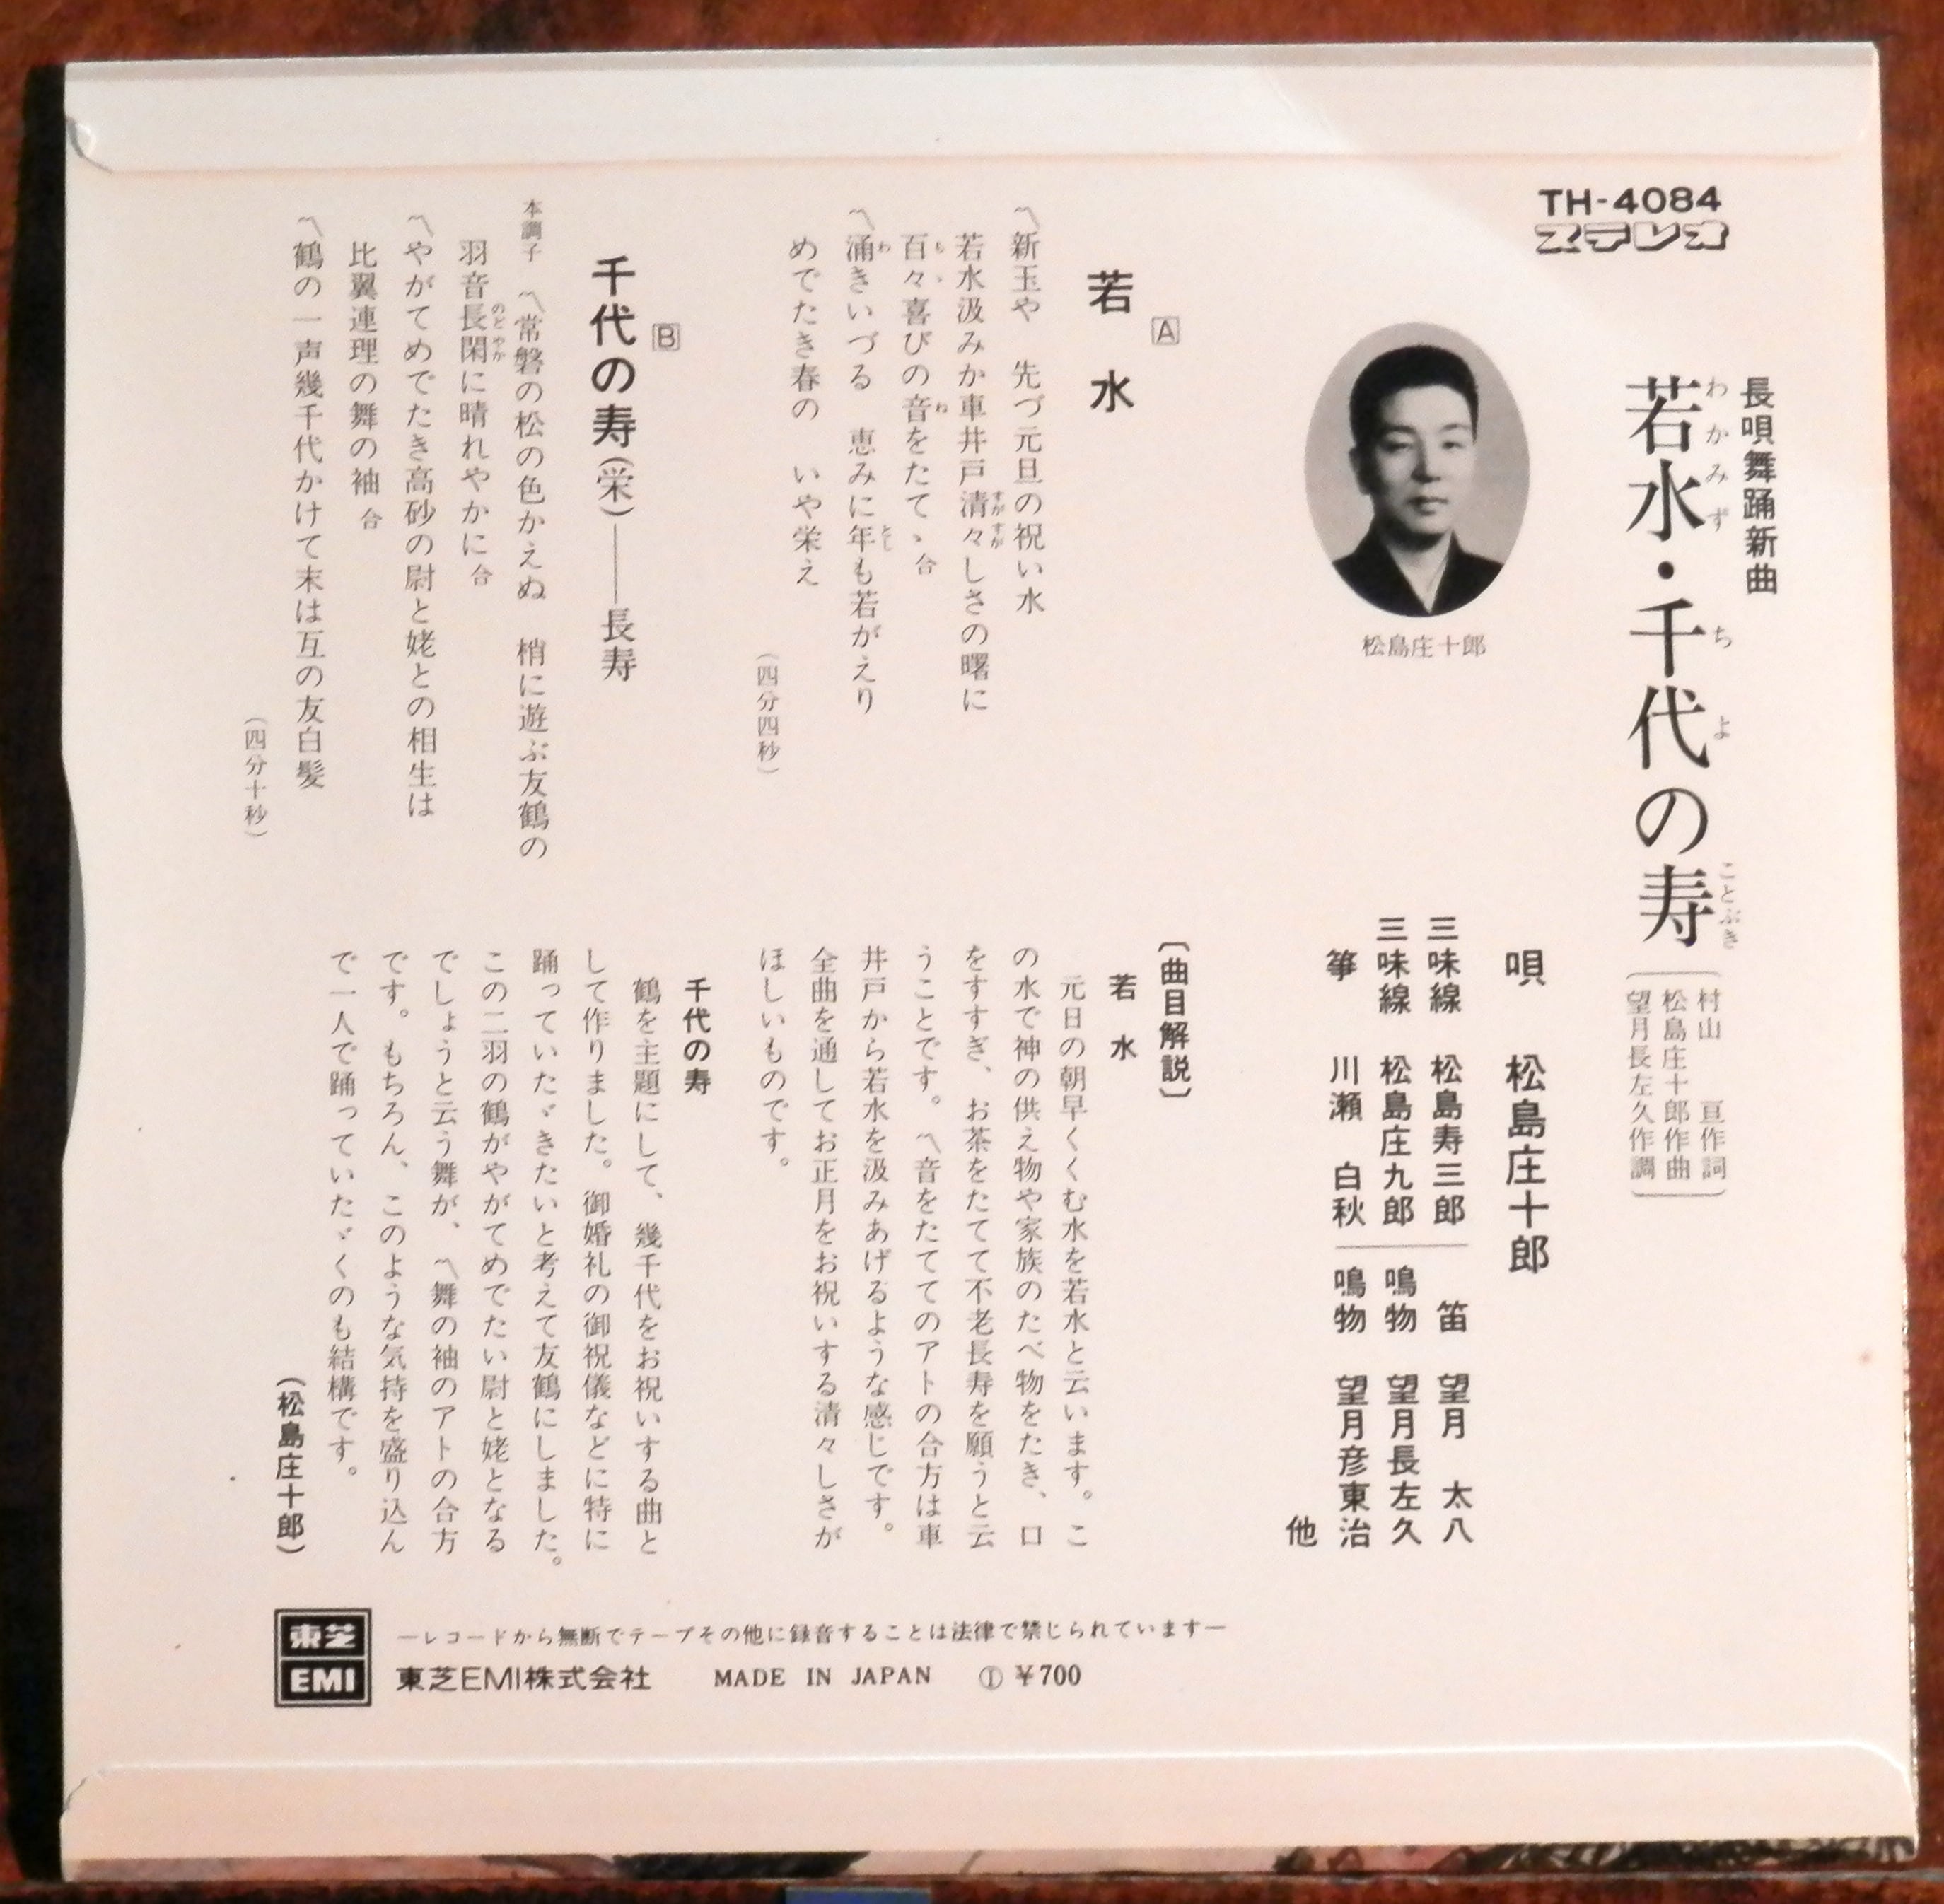 TH-4084
ステレオ
長唄舞踊新曲
若水・千代の寿
わかみず
ちよ
ことぶき
村山　亘作詞
松島庄十郎作曲
望月長左久作調
松島庄十郎
唄　松島庄十郎
三味線　松島寿三郎
三味線　松島庄九郎
箏　川瀬　白秋
笛　望月　太八
鳴物　望月長左久
鳴物　望月彦東治
他
A
若水
〽新玉や　先づ元旦の祝い水
若水汲みか車井戸清々しさの曙に
すがすが
百々喜びの音をたてヽ合
もヽ
ね
〽涌きいづる　恵みに年も若がえり
わ
とし
めでたき春の　いや栄え
（四分四秒）
B
千代の寿（栄）――長寿
本調子　〽常磐の松の色かえぬ　梢に遊ぶ友鶴の
羽音長閑に晴れやかに合
のどやか
〽やがてめでたき高砂の尉と姥との相生は
比翼連理の舞の袖合
〽鶴の一声幾千代かけて末は互の友白髪
（四分十秒）
〔曲目解説〕
若水
元日の朝早くくむ水を若水と云います。こ
の水で神の供え物や家族のたべ物をたき、口
をすすぎ、お茶をたてて不老長寿を願うと云
うことです。〽音をたててのアトの合方は車
井戸から若水を汲みあげるような感じです。
全曲を通してお正月をお祝いする清々しさが
ほしいものです。
千代の寿
鶴を主題にして、幾千代をお祝いする曲と
して作りました。御婚礼の御祝儀などに特に
踊っていたゞきたいと考えて友鶴にしました。
この二羽の鶴がやがてめでたい尉と姥となる
でしょうと云う舞が、〽舞の袖のアトの合方
です。もちろん、このような気持を盛り込ん
で一人で踊っていたゞくのも結構です。
（松島庄十郎）
東芝
EMI
―レコードから無断でテープその他に録音することは法律で禁じられています―
東芝EMI株式会社　MADE IN JAPAN　Ⓣ ¥700